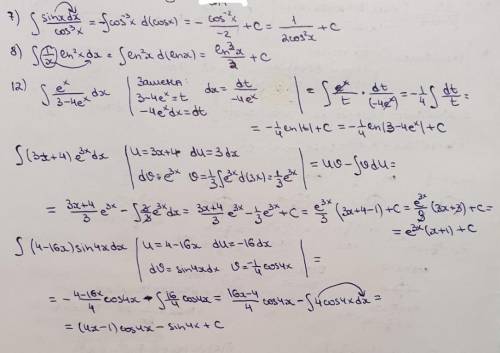 7) ∫ sinx dx / cos³x = -∫cos⁻³x d(cosx) = - cos⁻²x / -2 + C = 1 / 2cos²x + C
8) ∫ (1/x) ln²x dx = ∫ln²x d(lnx) = ln³x / 3 + C
12) ∫ eˣ / 3-4eˣ dx | Замена: 3-4eˣ=t -4eˣdx=dt dx = dt / -4eˣ | = ∫ eˣ/t · dt/(-4eˣ) = -1/4 ∫ dt/t =
= -1/4 ln|t| + C = -1/4 ln|3-4eˣ| + C
∫ (3x+4) e³ˣ dx | u=3x+4 du=3dx dv=e³ˣ v=1/3∫e³ˣd(3x)=1/3 e³ˣ | = uv - ∫vdu =
= 3x+4 / 3 e³ˣ - ∫ 3/3 e³ˣdx = 3x+4 / 3 e³ˣ - 1/3 e³ˣ + C = e³ˣ/3 (3x+4-1) + C = e³ˣ/3 (3x+3) + C =
= e³ˣ(x+1) + C
∫ (4-16x) sin4x dx | u=4-16x du=-16dx dv=sin4xdx v=-1/4 cos4x | =
= - 4-16x / 4 cos4x - ∫ 16/4 cos4x = 16x-4 / 4 cos4x - ∫4cos4x dx =
= (4x-1)cos4x - sin4x + C